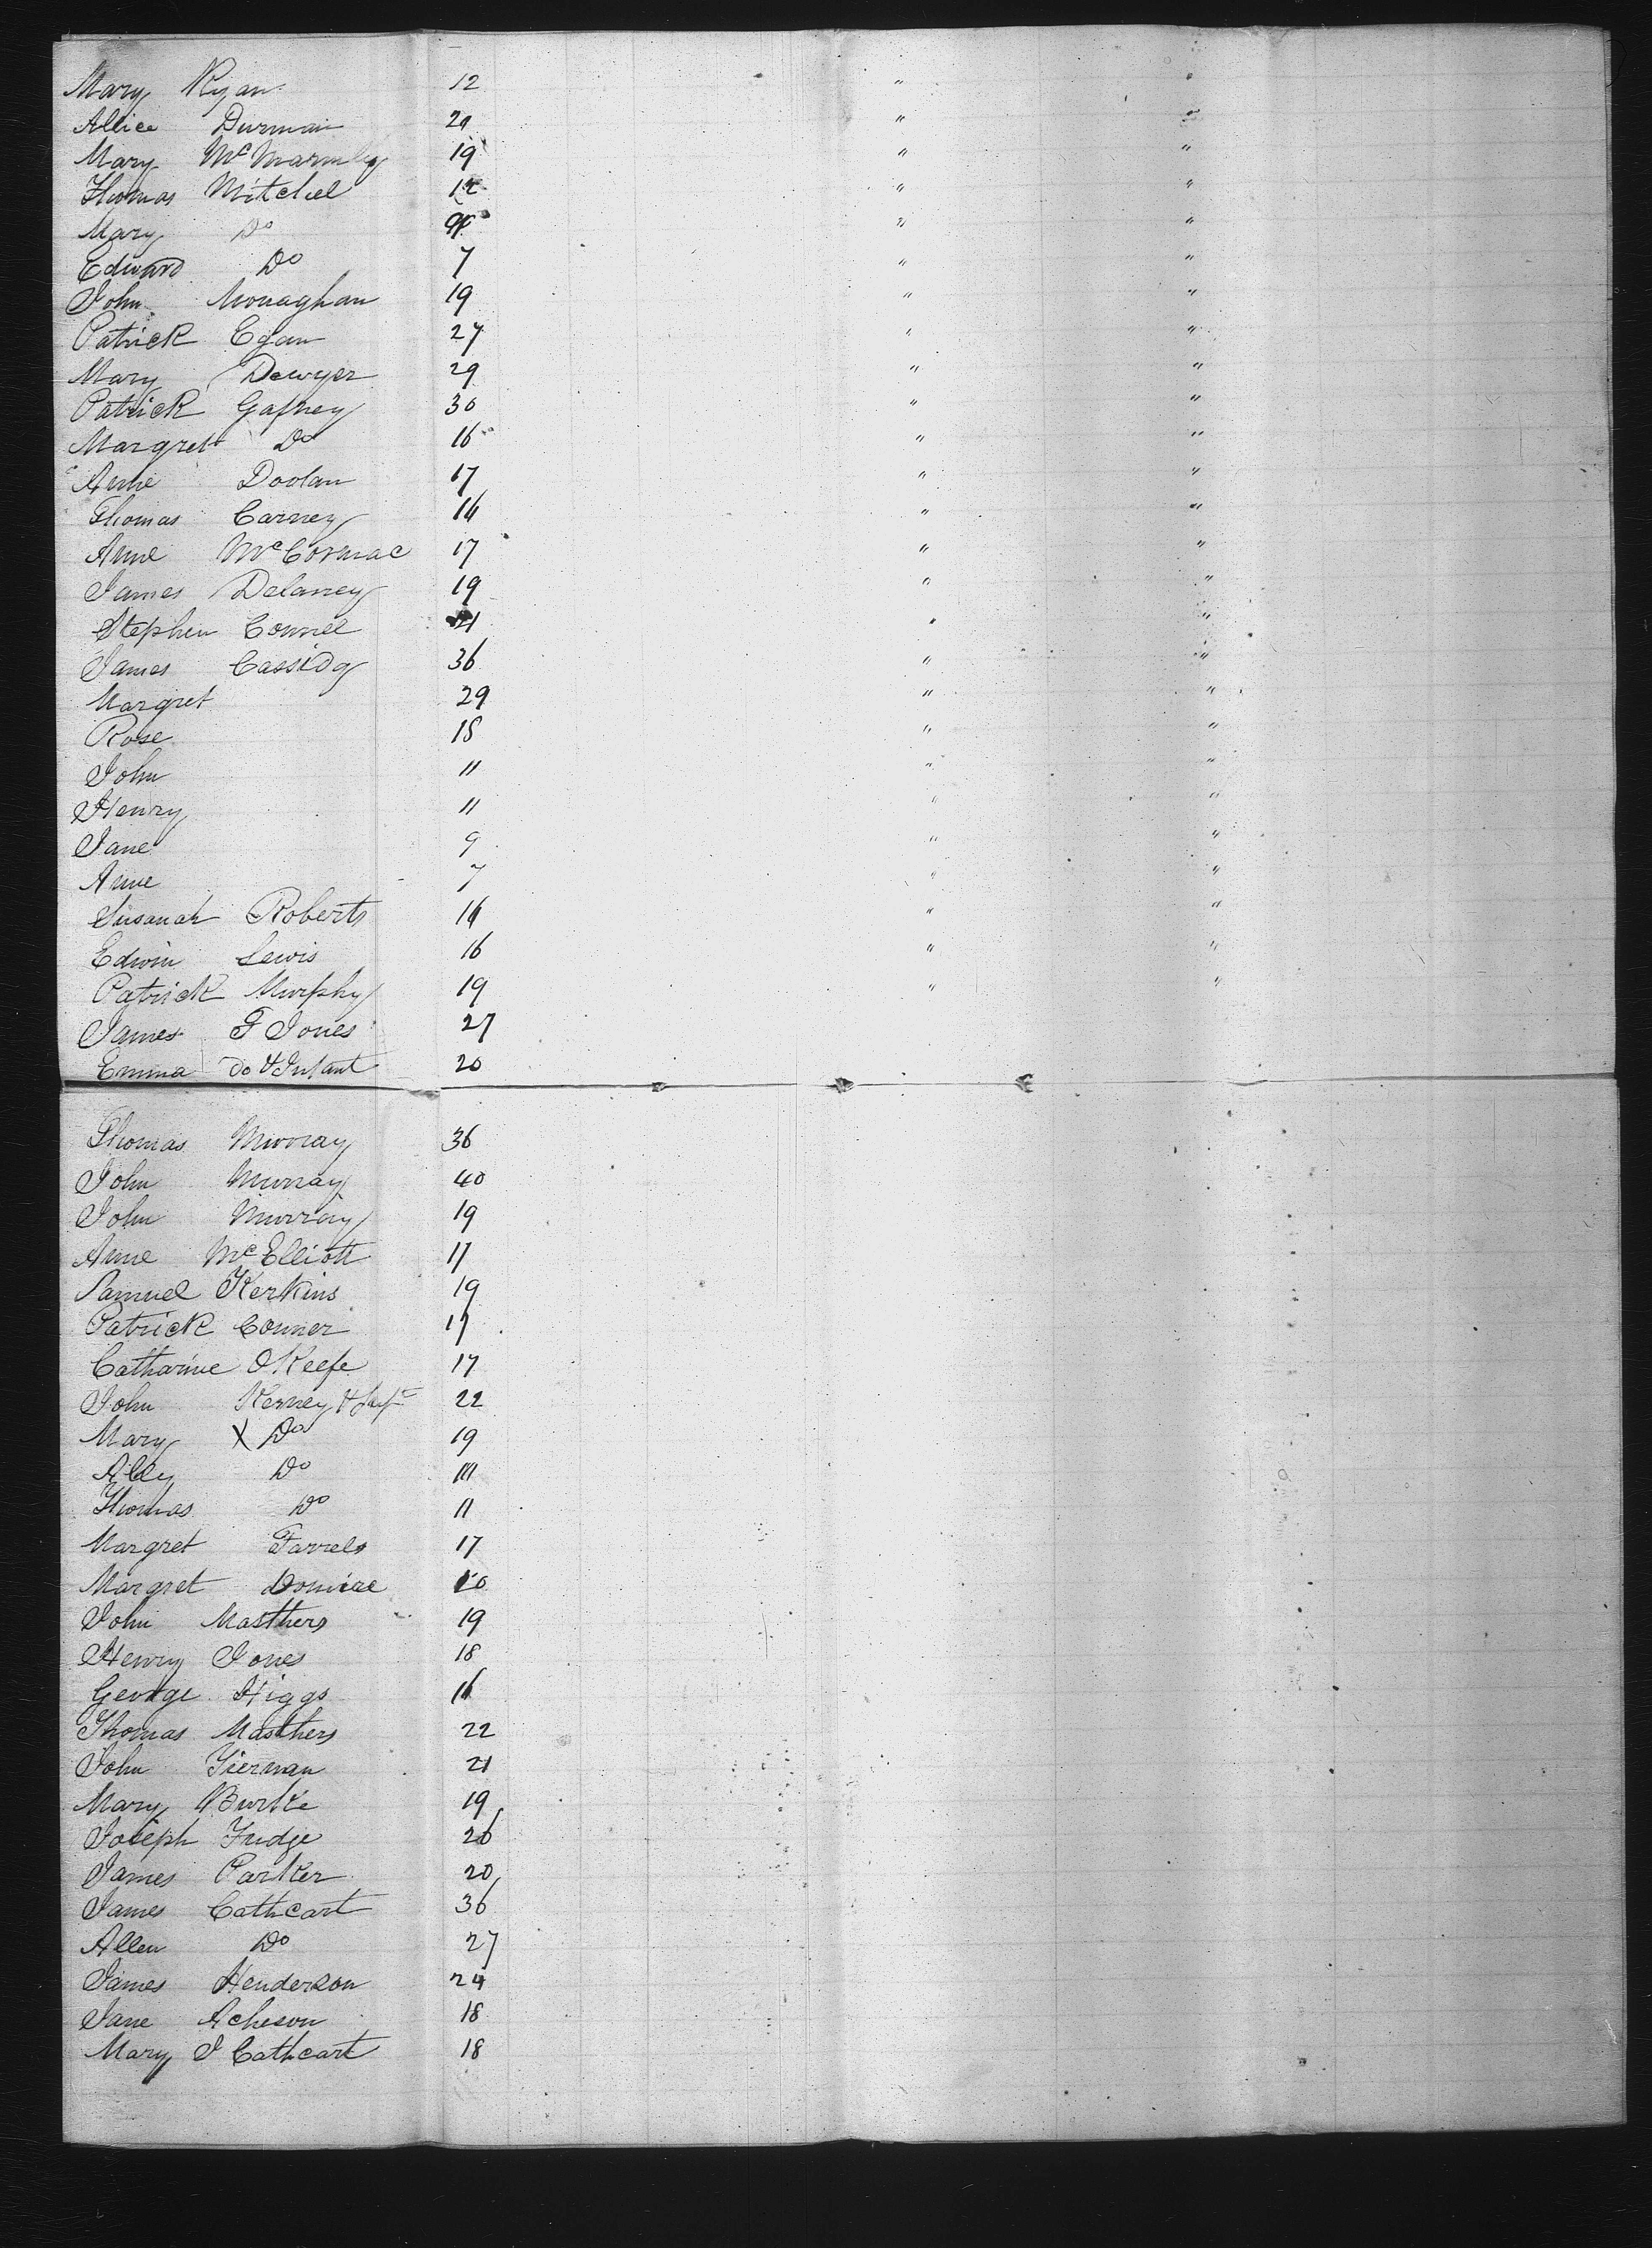 Mary Ryan 12 " "
Allice Durman 21 " "
Mary 19 " "
Thomas Mitchel 12 " "
Mary Do " "
Edward Do 7 " "
John Monaghan 19 " "
Patrick Egan 27 " "
Mary Dewyer 29 " "
Patrick Gafney 30 " "
Margret Do 16 " "
Anne Doolan 17 " "
Thomas Carney 14 " "
Anne McCormac 17 " "
James Delaney 19 " "
Stephen Connel 21 " "
James Cassidy 36 " "
Margret 29 " "
Rose 18 " "
John 11 " "
Henry 11 " "
Jane 9 " "
Anne 7 " "
Susanah Roberts 14 " "
Edwin Lewis 16 " "
Patrick Murphy 19 " "
James F Jones 27
Emma do & Infant 20
Thomas Murray 36
John Murray 40
John Murray 19
Anne McElliott 17
Samuel Kerkins 19
Patrick Conner 17
Catharine OKeefe 17
John Kerney & Inft 22
Mary X Do 19
Ally Do
Thomas Do 11
Margret Farrels 17
Margret
John Masthers 19
Henry Jones 18
George Higgs 16
Thomas Masthers 22
John Tiernan 21
Mary Burke 19
Joseph Fudge 26
James Parker 20
James Cathcart 36
Allen Do 27
James Henderson 24
Jane Acheson 18
Mary J Cathcart 18